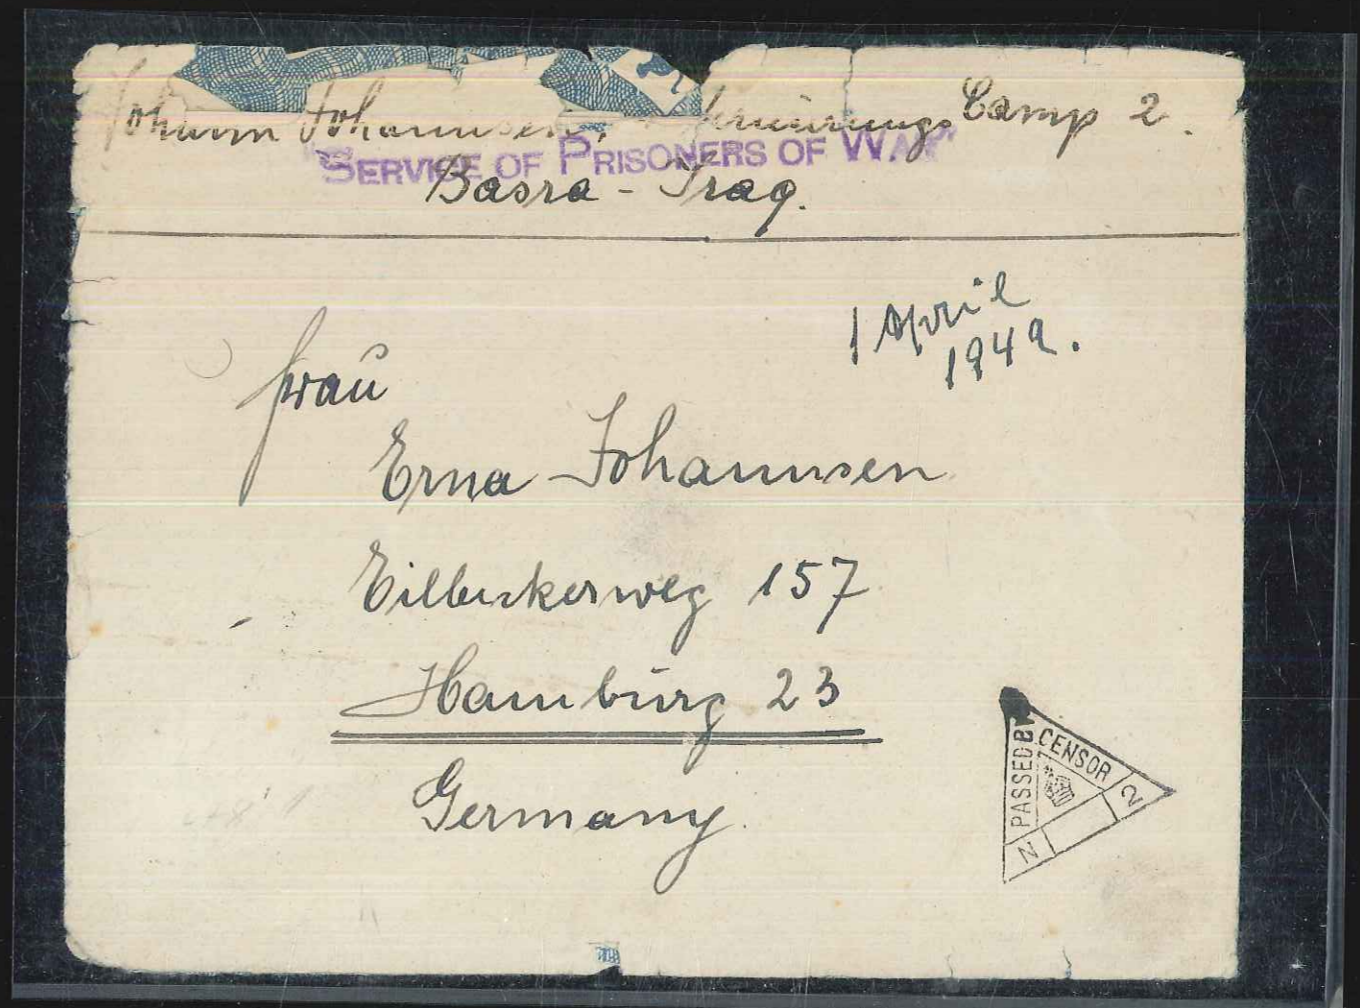 Johann Johannsen, Camp 2.
"SERVICE OF PRISONERS OF WAR"
Basra - Iraq.
1 April
1942.
Frau
Erna Johannsen
Eilbeckerweg 157
Hamburg 23
Germany.
PASSED BY
CENSOR
N 2